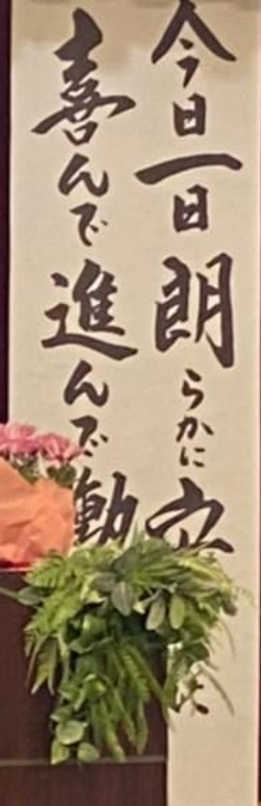 今日一日朗らかに
喜んで進んで動